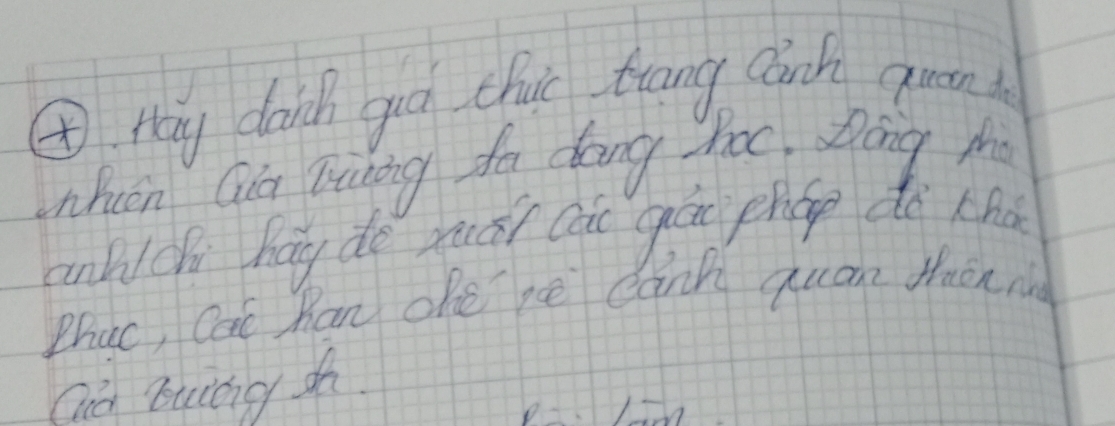 (*). Hãy đánh giá thực trạng cảnh quan
nhiên của trường ta đang học. Đồng
anh/chị hãy đề xuất các giải pháp để khắc
phục, các hạn chế về cảnh quan thiên
của trường ta.